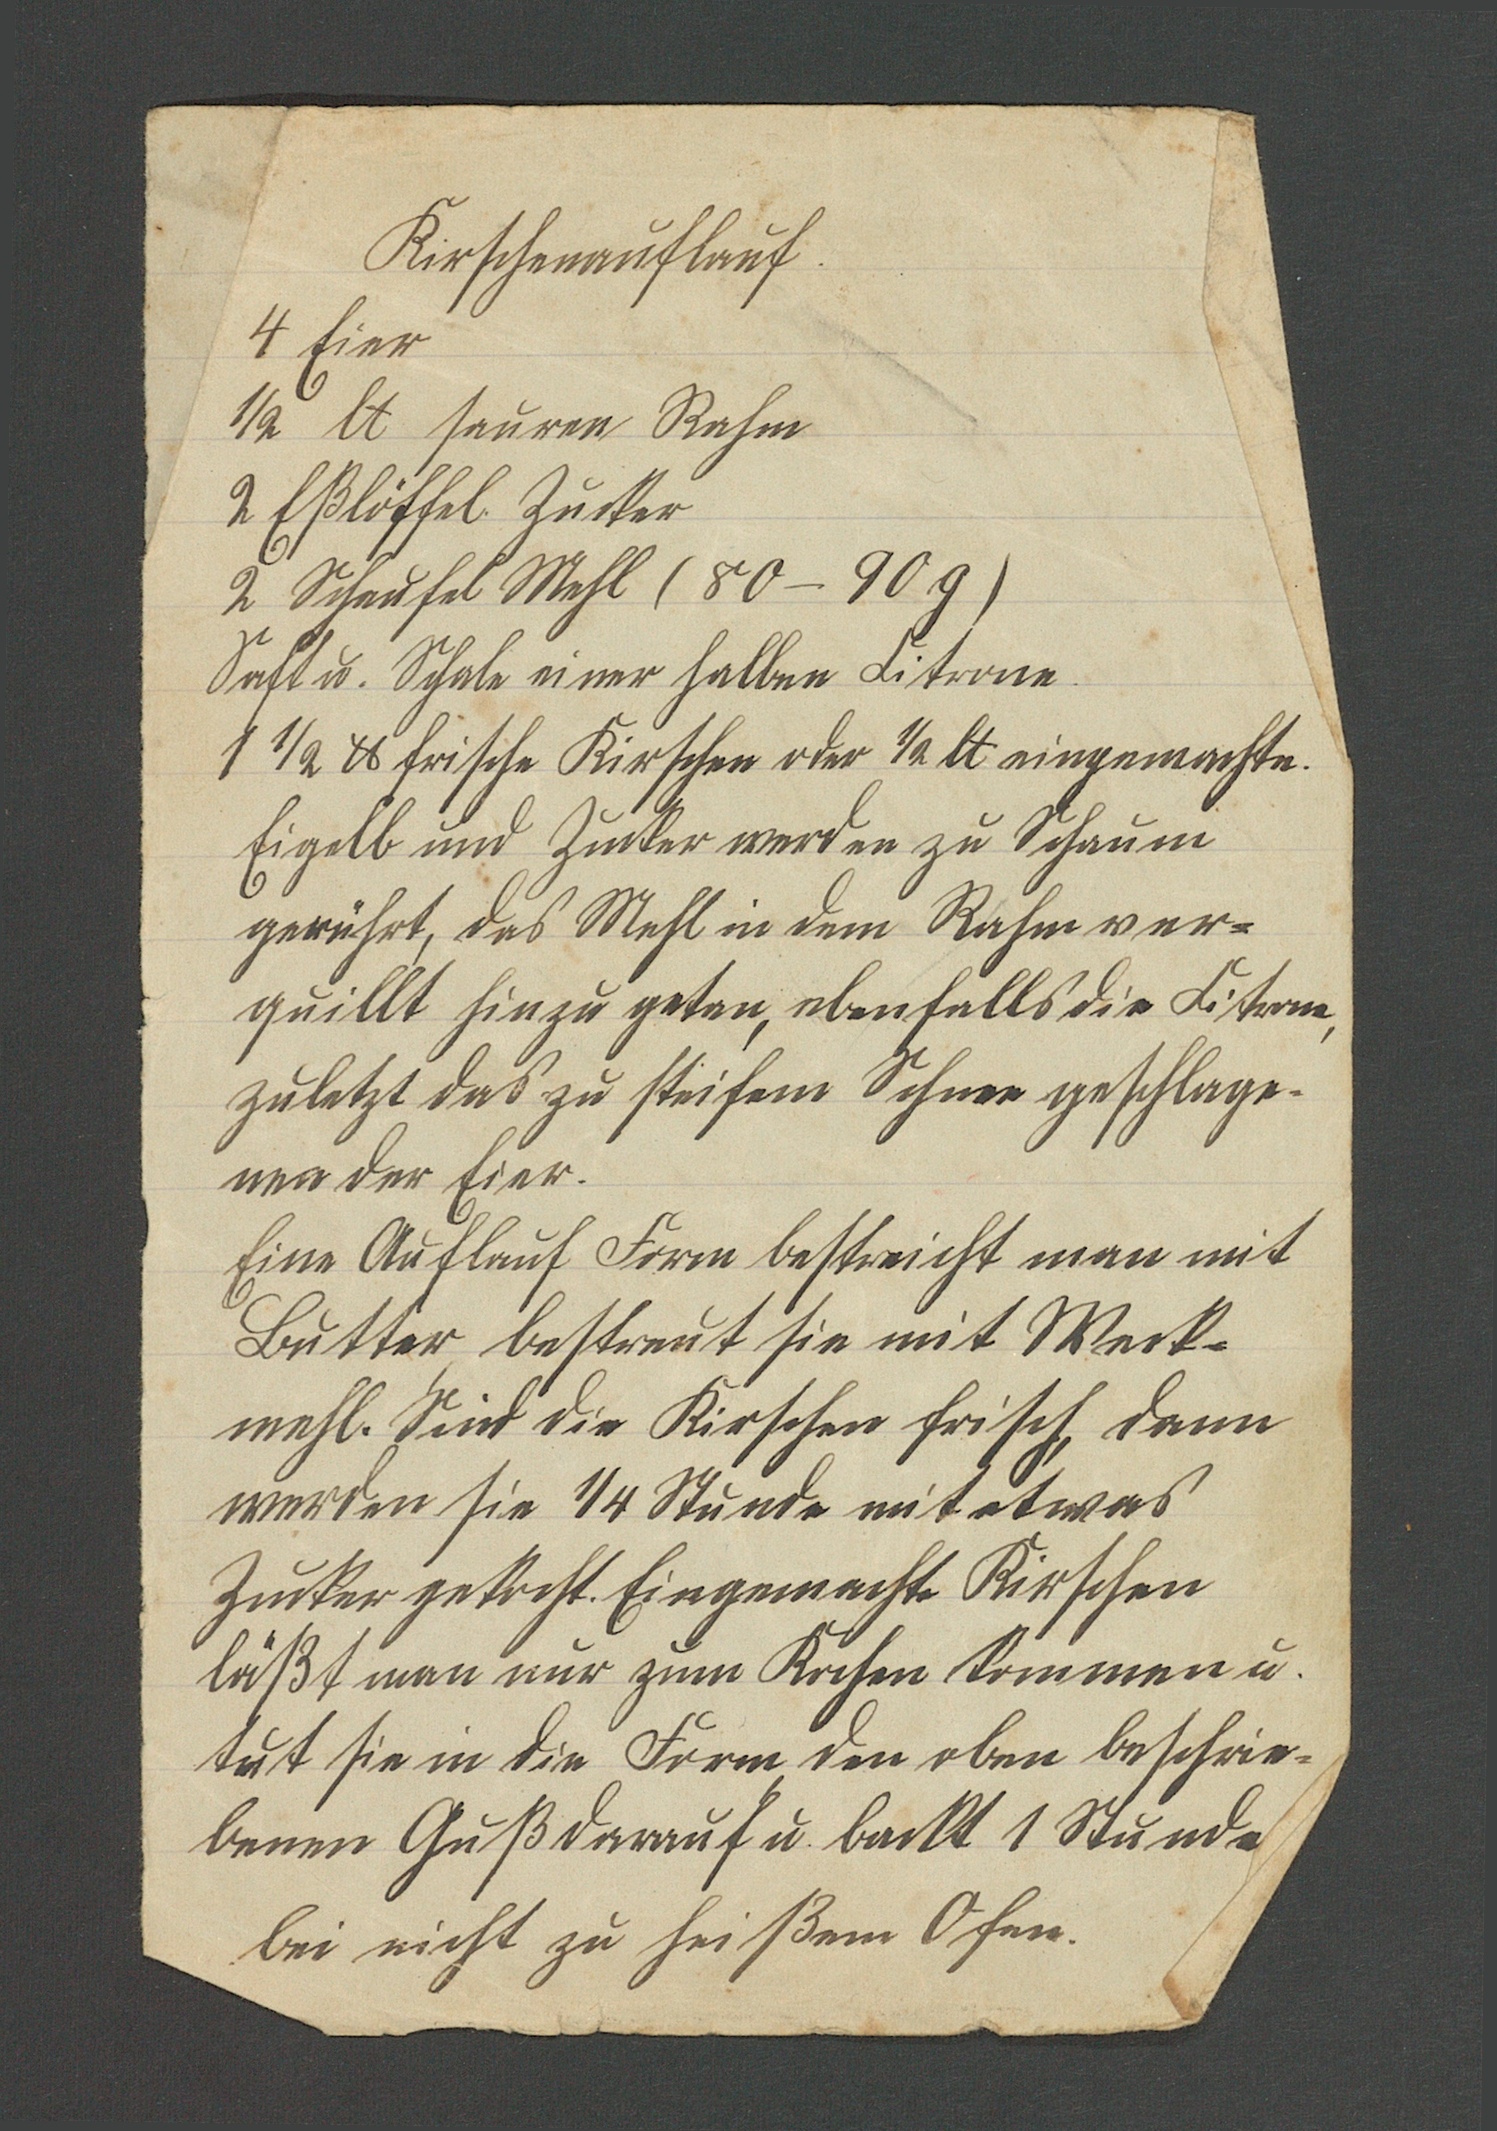 Kirschenauflauf.
4 Eier
1/2 lt sauren Rahm
2 Eßlöffel Zucker
2 Schaufel Mehl (80 – 90 g)
Saft u. Schale einer halben Citrone.
1 1/2 ℔ frische Kirschen oder 1/2 lt eingemachte.
Eigelb und Zucker werden zu Schaum
gerührt, das Mehl in dem Rahm ver=
quillt hinzu getan, ebenfalls die Citrone,
zuletzt das zu steifem Schnee geschlage-
nen der Eier.
Eine Auflauf Form bestreicht man mit
Butter, bestreut sie mit Weck-
mehl. Sind die Kirschen frisch, dann
werden sie 1/4 Stunde mit etwas
Zucker gekocht. Eingemachte Kirschen
läßt man nur zum Kochen kommen u.
tut sie in die Form, den oben beschrie=
benen Guß darauf u. backt 1 Stunde
bei nicht zu heißem Ofen.